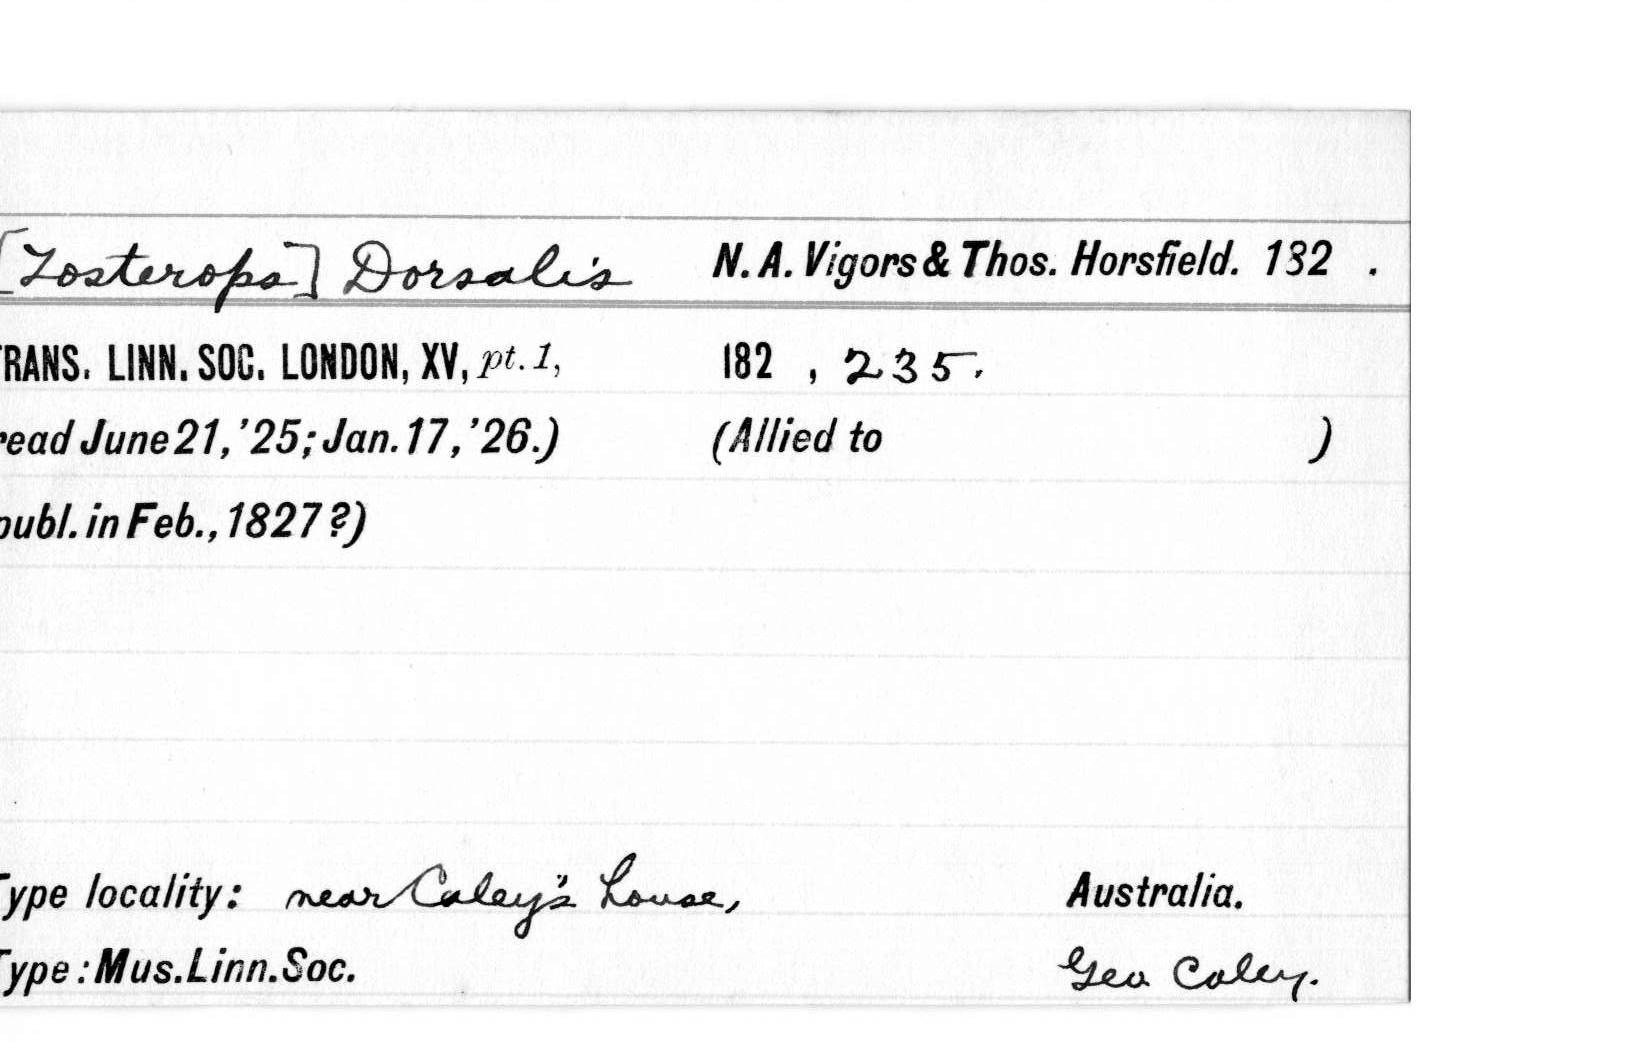 [Zosterops] Dorsalis N. A. Vigors & Thos. Horsfield. 182 .
TRANS. LINN. SOC. LONDON, XV, pt. 1, 182 , 235.
read June 21, '25; Jan. 17, '26.) (Allied to )
publ. in Feb., 1827 ?)
Type locality: near Caley's house, Australia.
Type : Mus. Linn. Soc. Geo Caley.